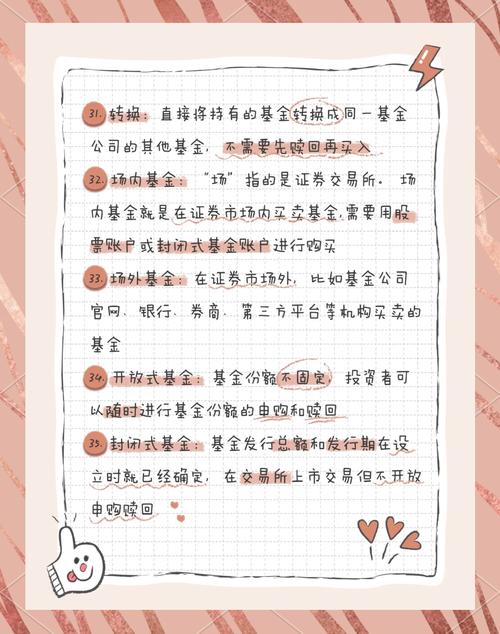 31. 转换：直接将持有的基金转换成同一基金
公司的其他基金，不需要先赎回再买入
32. 场内基金：“场”指的是证券交易所。场
内基金就是在证券市场内买卖基金,需要用股
票账户或封闭式基金账户进行购买
33. 场外基金：在证券市场外，比如基金公司
官网、银行、券商、第三方平台等机构买卖的
基金
34. 开放式基金：基金份额不固定，投资者可
以随时进行基金份额的申购和赎回
35. 封闭式基金：基金发行总额和发行期在设
立时就已经确定，在交易所上市交易但不开放
申购赎回